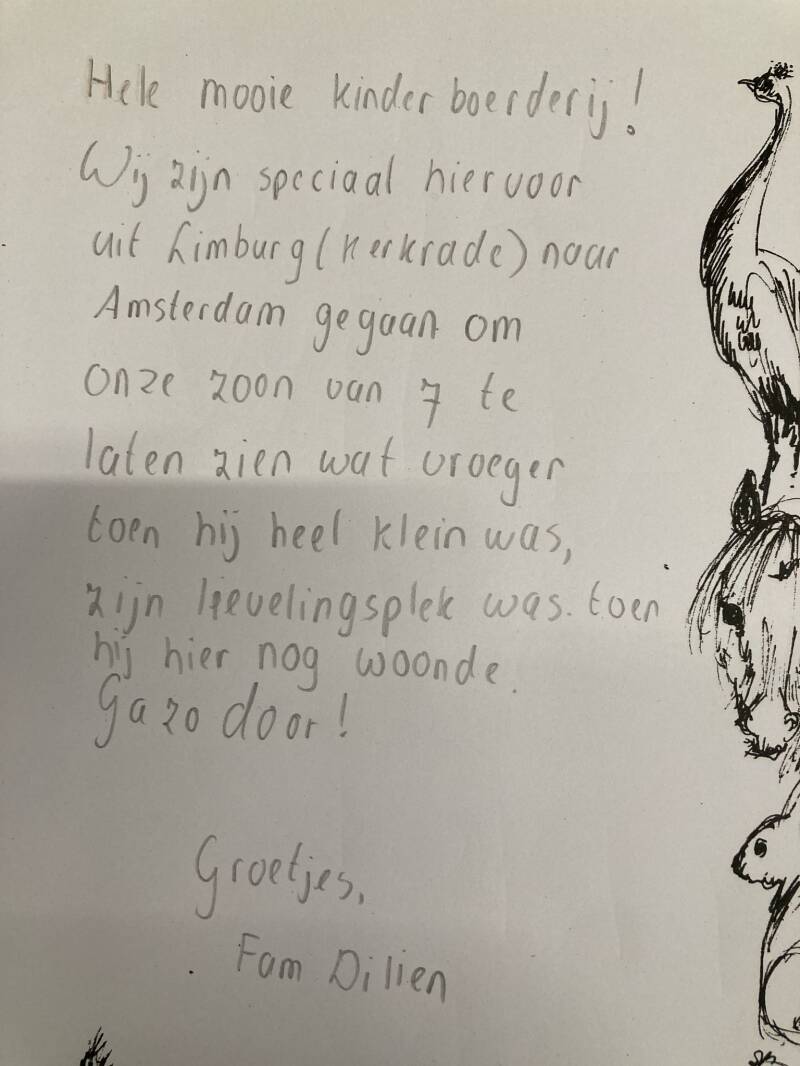 Hele mooie kinderboerderij!
Wij zijn speciaal hiervoor
uit Limburg (Kerkrade) naar
Amsterdam gegaan om
onze zoon van 7 te
laten zien wat vroeger
toen hij heel klein was,
zijn lievelingsplek was. toen
hij hier nog woonde.
Ga zo door!
Groetjes,
Fam Dilien